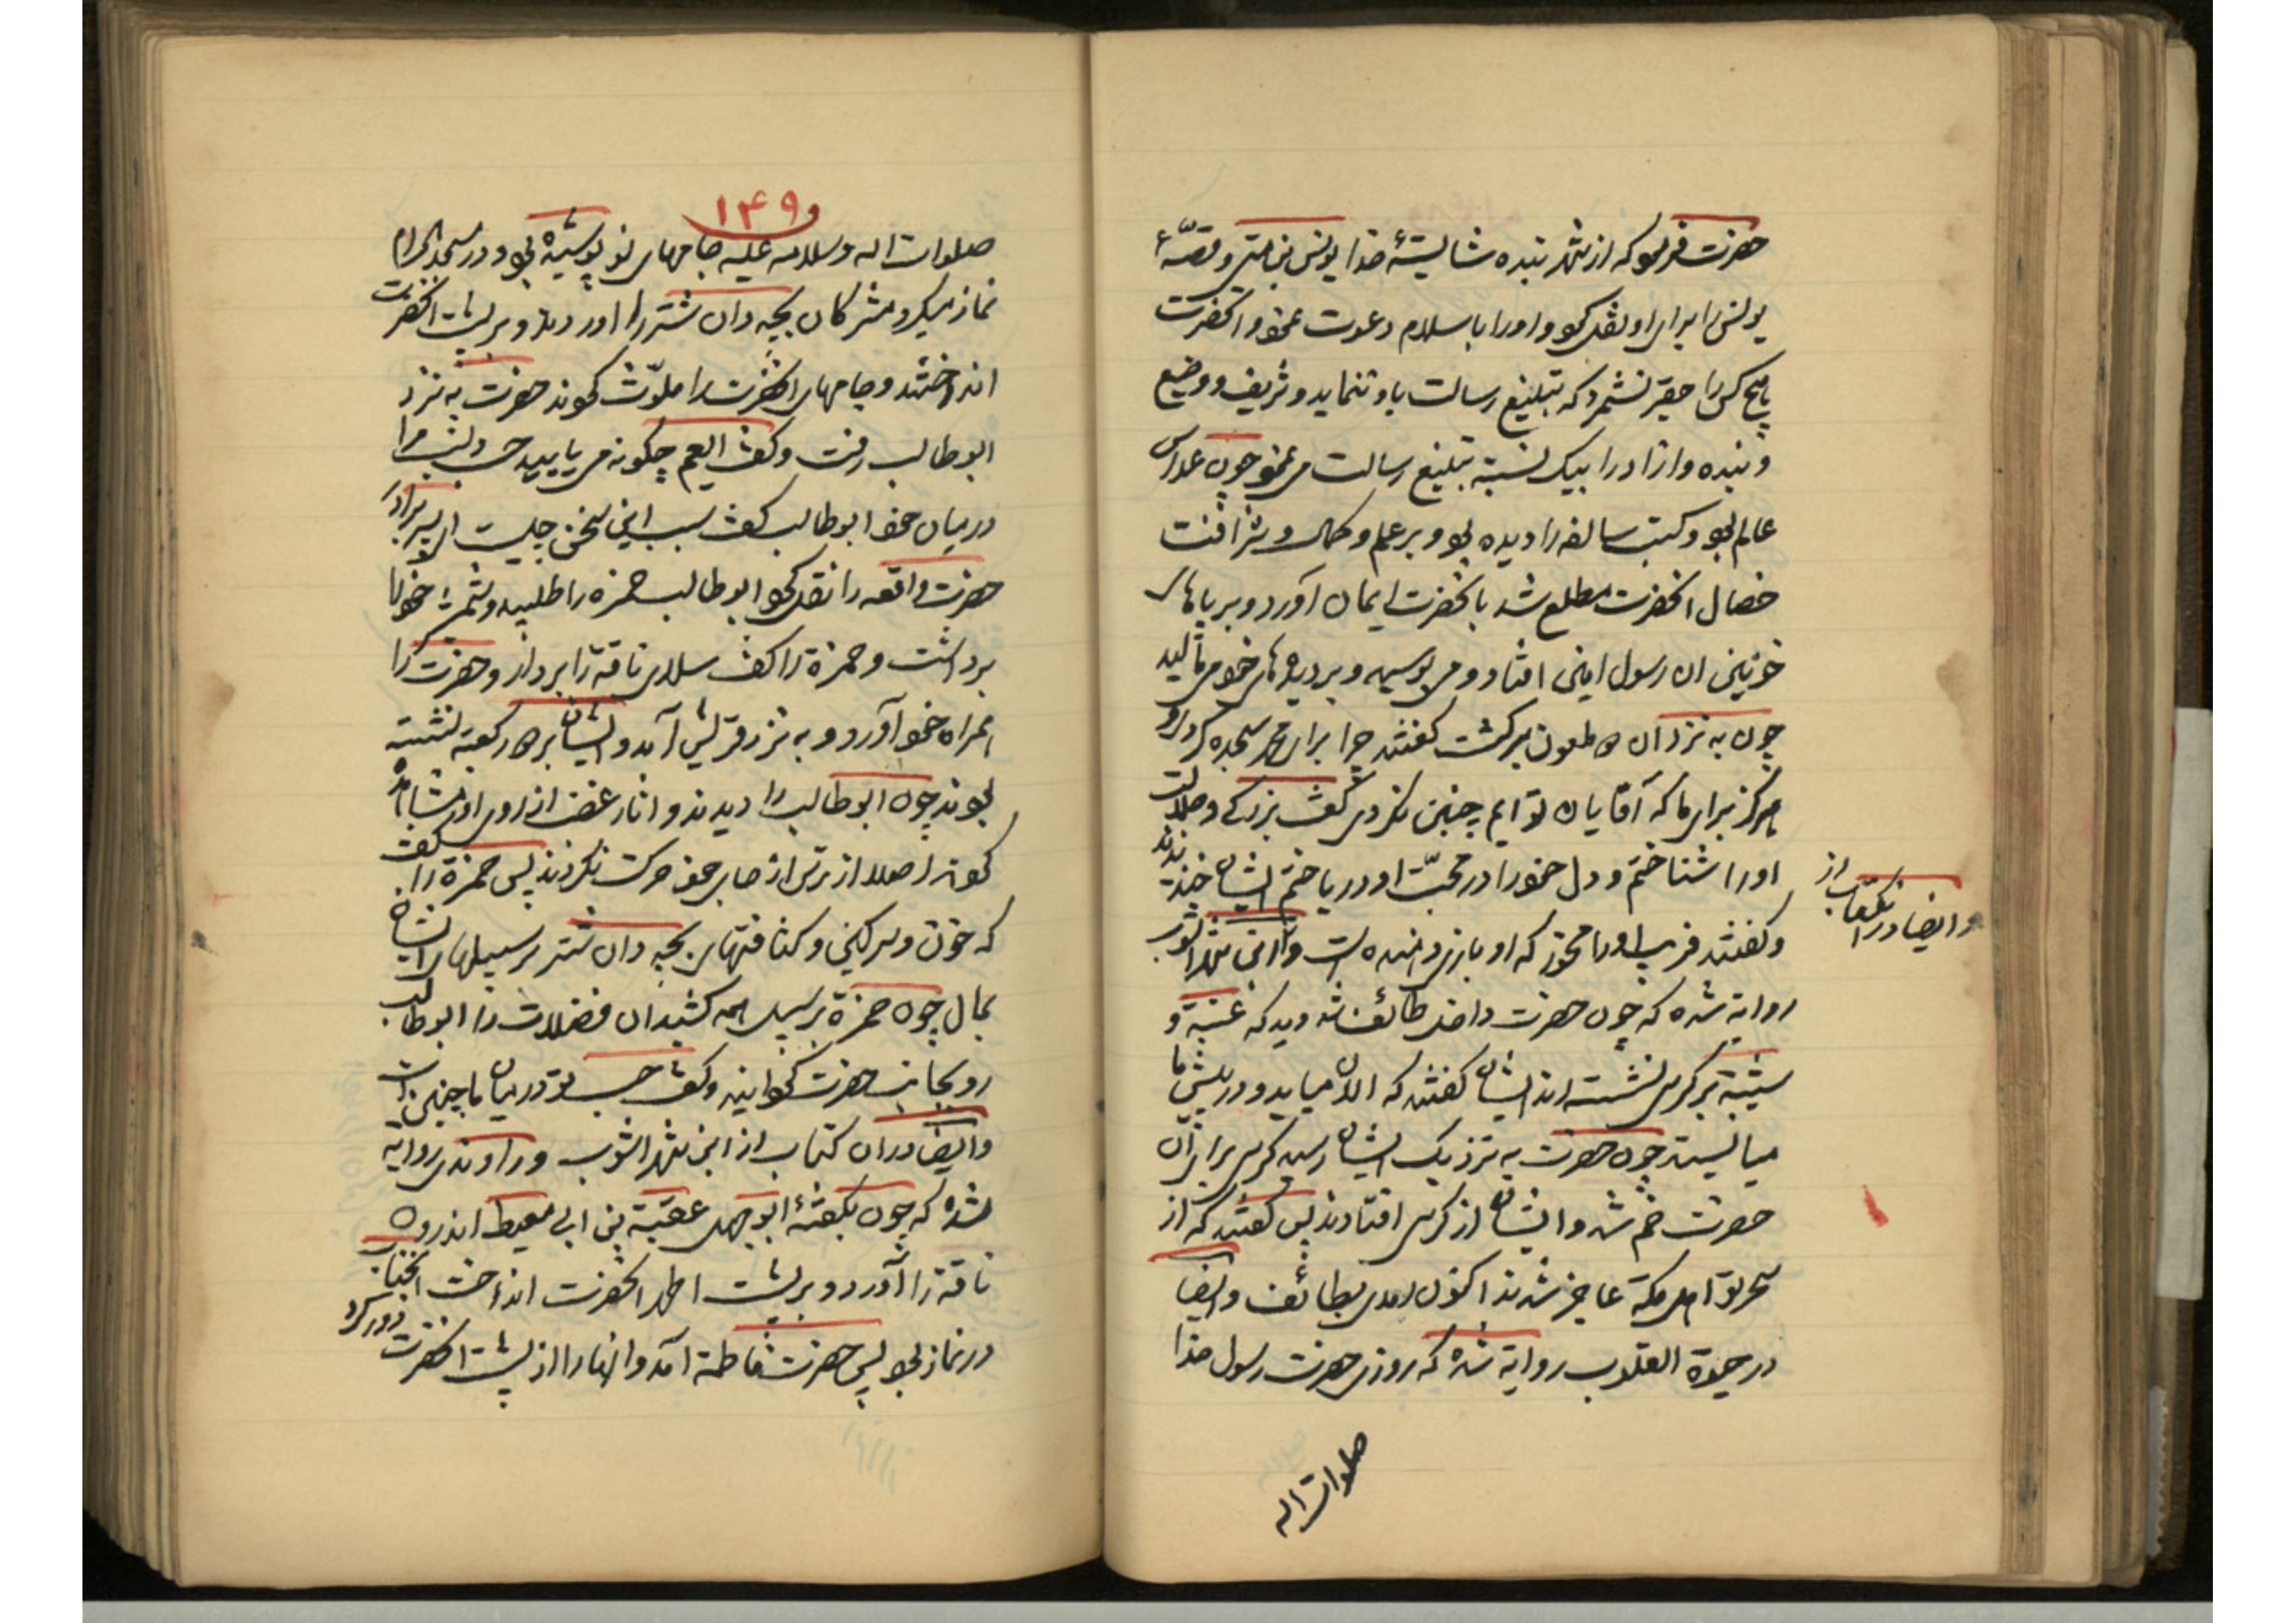 حضرت فرمود که از شهر بنده شایستهٔ خدا یونس بن متی و قصّهٔ
یونس را برای او نقل کرد و او را باسلام دعوت نمود و انحضرت
هیچ کس را حقیر نشمرد که تبلیغ رسالت باو ننماید و شریف و وضیع
و بنده و ازاد را بیک نسبة تبلیغ رسالت می نمود چون عداس
عالم بود و کتب سالفه را دیده بود و بر علم و کمال و شرافت
خصال انحضرت مطلع شد بانحضرت ایمان آورد و بر پاهای
خونین ان رسول امین افتاد و می بوسید و بر دیده های خود می مالید
چون به نزد ان دو ملعون برگشت گفتند چرا برای محمد سجده کردی و
هرگز برای ما که آقایان تو ایم چنین نکردی گفت بزرگی و جلالت
او را شناختم و دل خود را در محبّت او در یافتم ایشان خندیدند
و گفتند فریب او را مخور که او بازی دهنده است و از ابن شهراشوب
وایضا در انکتاب از
روایة شده که چون حضرت داخل طائف شد دید که عتبة و
شیبة بر کرسی نشسته اند ایشان گفتند که الان میاید و در پیش ما
میایستد چون حضرت به نزدیک ایشان رسید کرسی برای ان
حضرت خم شد و ایشان از کرسی افتادند پس گفتند که از
سحر تو اهل مکة عاجز شدند اکنون امدی بطائف وایضا
در حیوة القلوب روایة شده که روزی حضرت رسول خدا
صلوات اله
و ۱۴۹
صلوات اله وسلامه علیه جامهای نو پوشیده بود و در مسجد الحرام
نماز میکرد مشرکان بچه دان شتر را اوردند و بر پشت انحضرت
انداختند و جامهای انحضرت را ملوّث کردند حضرت به نزد
ابوطالب رفت و گفت ایعم چگونه می یابید حسب و نسب مرا
در میان خود ابوطالب گفت سبب این سخن چیست ای پسر برادر
حضرت واقعه را نقل کرد ابوطالب حمزه را طلبید و شمشیر خود را
برداشت و حمزة را گفت سلای ناقة را بردار و حضرت را
همراه خود آورد و به نزد قریش آمد و ایشان بر در کعبة نشسته
بودند چون ابوطالب را دیدند و اثار غضب از روی او مشاهده
کردند اصلا از ترس از جای خود حرکت نکردند پس حمزة را گفت
که خون و سرگین و کثافتهای بچه دان شتر بر سبیلهای ایشان
بمال چون حمزة بر سبیل همه کشید ان فضلات را ابوطالب
رو بجانب حضرت گردانید و گفت حسب تو در میان ما چنین است
وایضا در ان کتاب از ابن شهراشوب و راوندی روایة
شده که چون بگفتهٔ ابوجهل عقبة بن ابی معیط اندرون
ناقة را آورد و بر پشت اطهر انحضرت انداخت انجناب
در نماز بود پس حضرت فاطمة آمد و انها را از پشت انحضرت دور کرد